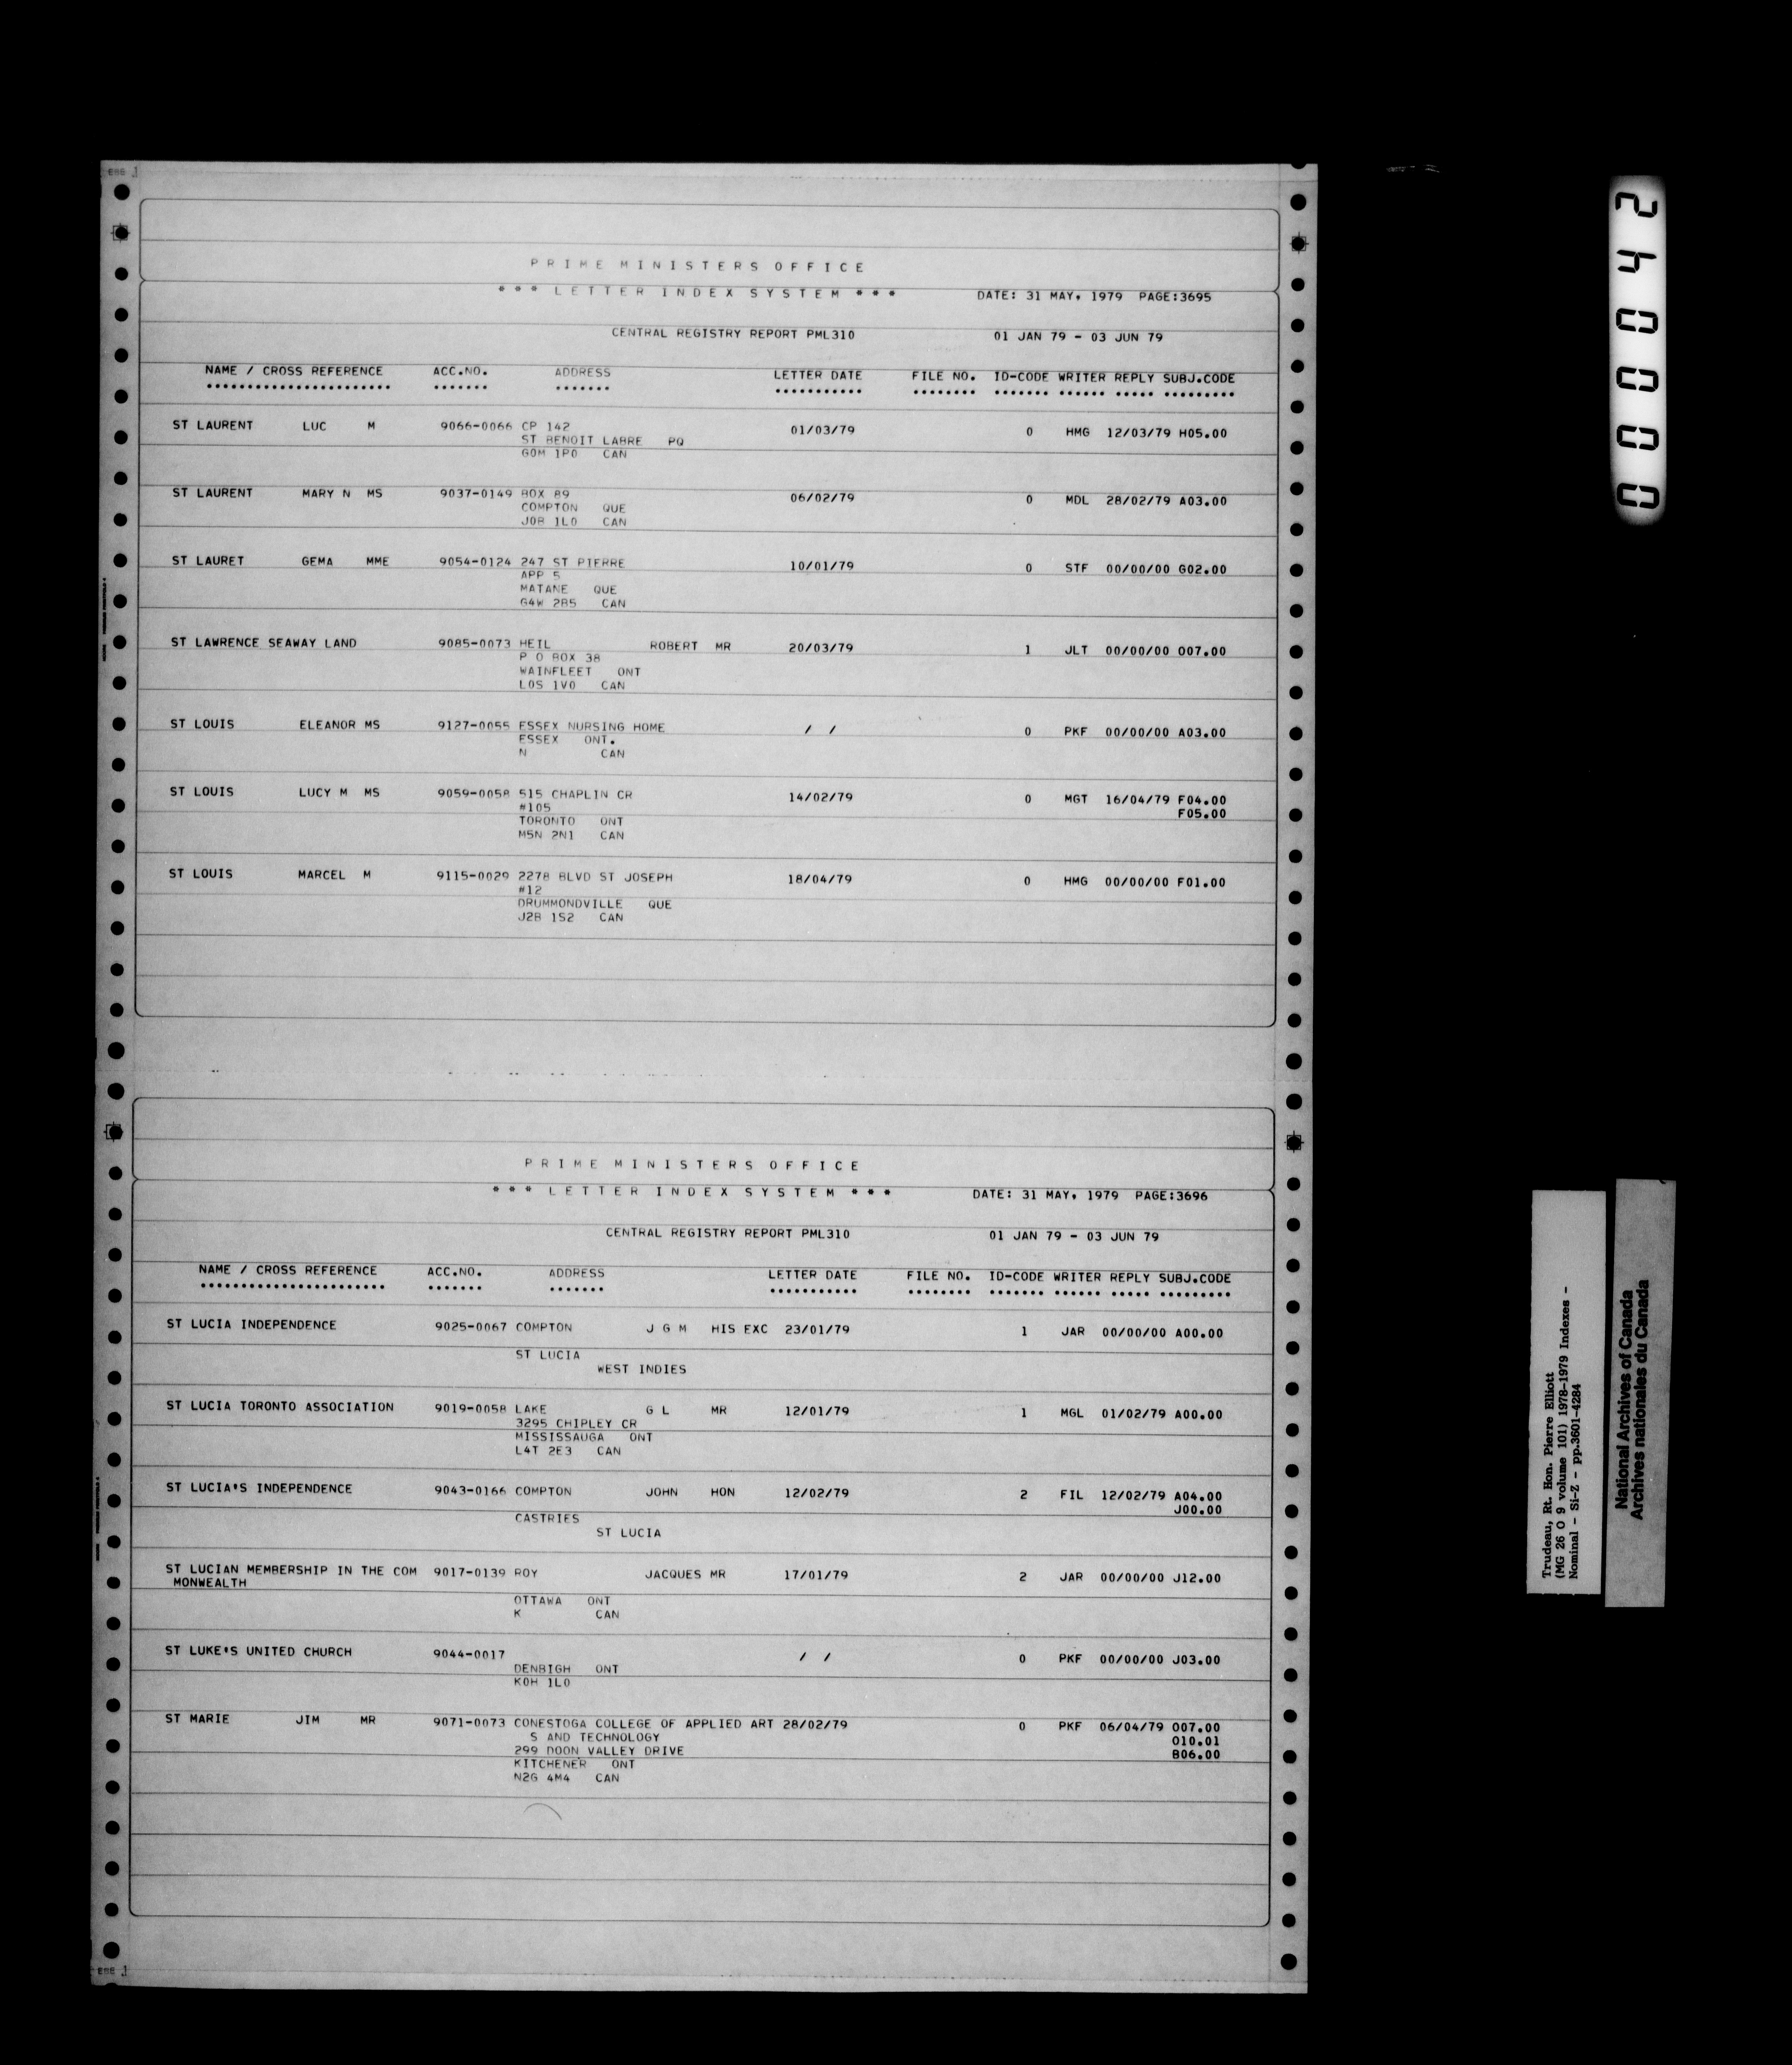 PRIME MINISTERS OFFICE
*** LETTER INDEX SYSTEM *** DATE: 31 MAY, 1979 PAGE:3695
CENTRAL REGISTRY REPORT PML310 01 JAN 79 - 03 JUN 79
NAME / CROSS REFERENCE ACC.NO. ADDRESS LETTER DATE FILE NO. ID-CODE WRITER REPLY SUBJ.CODE
ST LAURENT LUC M 9066-0066 CP 142 01/03/79 0 HMG 12/03/79 H05.00
ST BENOIT LABRE PQ
G0M 1P0 CAN
ST LAURENT MARY N MS 9037-0149 BOX 89 06/02/79 0 MDL 28/02/79 A03.00
COMPTON QUE
J0B 1L0 CAN
ST LAURET GEMA MME 9054-0124 247 ST PIERRE 10/01/79 0 STF 00/00/00 G02.00
APP 5
MATANE QUE
G4W 2B5 CAN
ST LAWRENCE SEAWAY LAND 9085-0073 HEIL ROBERT MR 20/03/79 1 JLT 00/00/00 O07.00
P O BOX 38
WAINFLEET ONT
L0S 1V0 CAN
ST LOUIS ELEANOR MS 9127-0055 ESSEX NURSING HOME / / 0 PKF 00/00/00 A03.00
ESSEX ONT.
N CAN
ST LOUIS LUCY M MS 9059-0058 515 CHAPLIN CR 14/02/79 0 MGT 16/04/79 F04.00
#105 F05.00
TORONTO ONT
M5N 2N1 CAN
ST LOUIS MARCEL M 9115-0029 2278 BLVD ST JOSEPH 18/04/79 0 HMG 00/00/00 F01.00
#12
DRUMMONDVILLE QUE
J2B 1S2 CAN
PRIME MINISTERS OFFICE
*** LETTER INDEX SYSTEM *** DATE: 31 MAY, 1979 PAGE:3696
CENTRAL REGISTRY REPORT PML310 01 JAN 79 - 03 JUN 79
NAME / CROSS REFERENCE ACC.NO. ADDRESS LETTER DATE FILE NO. ID-CODE WRITER REPLY SUBJ.CODE
ST LUCIA INDEPENDENCE 9025-0067 COMPTON J G M HIS EXC 23/01/79 1 JAR 00/00/00 A00.00
ST LUCIA
WEST INDIES
ST LUCIA TORONTO ASSOCIATION 9019-0058 LAKE G L MR 12/01/79 1 MGL 01/02/79 A00.00
3295 CHIPLEY CR
MISSISSAUGA ONT
L4T 2E3 CAN
ST LUCIA'S INDEPENDENCE 9043-0166 COMPTON JOHN HON 12/02/79 2 FIL 12/02/79 A04.00
J00.00
CASTRIES
ST LUCIA
ST LUCIAN MEMBERSHIP IN THE COM 9017-0139 ROY JACQUES MR 17/01/79 2 JAR 00/00/00 J12.00
MONWEALTH
OTTAWA ONT
K CAN
ST LUKE'S UNITED CHURCH 9044-0017 / / 0 PKF 00/00/00 J03.00
DENBIGH ONT
K0H 1L0
ST MARIE JIM MR 9071-0073 CONESTOGA COLLEGE OF APPLIED ART 28/02/79 0 PKF 06/04/79 O07.00
S AND TECHNOLOGY O10.01
299 DOON VALLEY DRIVE B06.00
KITCHENER ONT
N2G 4M4 CAN
240000
Trudeau, Rt. Hon. Pierre Elliott
(MG 26 O 9 volume 101) 1978-1979 Indexes -
Nominal - Si-Z - pp.3601-4284
National Archives of Canada
Archives nationales du Canada